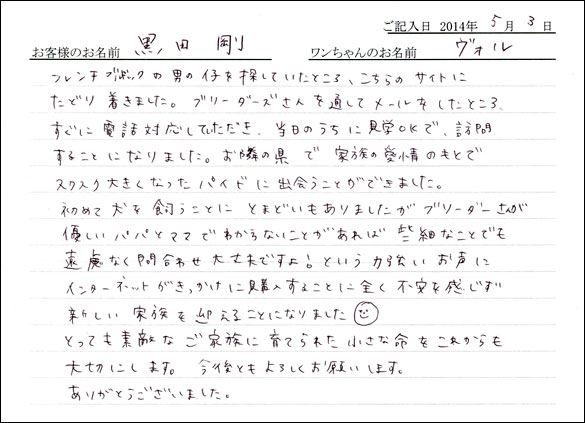 ご記入日 2014年 5月 3日
お客様のお名前 黒田 剛 ワンちゃんのお名前 ヴォル
フレンチブルドックの男の仔を探していたところ、こちらのサイトに
たどり着きました。ブリーダーズさんを通してメールをしたところ
すぐに電話対応していただき、当日のうちに見学OKで、訪問
することになりました。お隣の県で家族の愛情のもとで
スクスク大きくなったパイドに出会うことができました。
初めて犬を飼うことにとまどいもありましたがブリーダーさんが
優しいパパとママでわからないことがあれば些細なことでも
遠慮なく問合わせ大丈夫ですよ!という力強いお声に
インターネットがきっかけに購入することに全く不安を感じず
新しい家族を迎えることになりました
とっても素敵なご家族に育てられた小さな命をこれからも
大切にします。今後ともよろしくお願いします。
ありがとうございました。